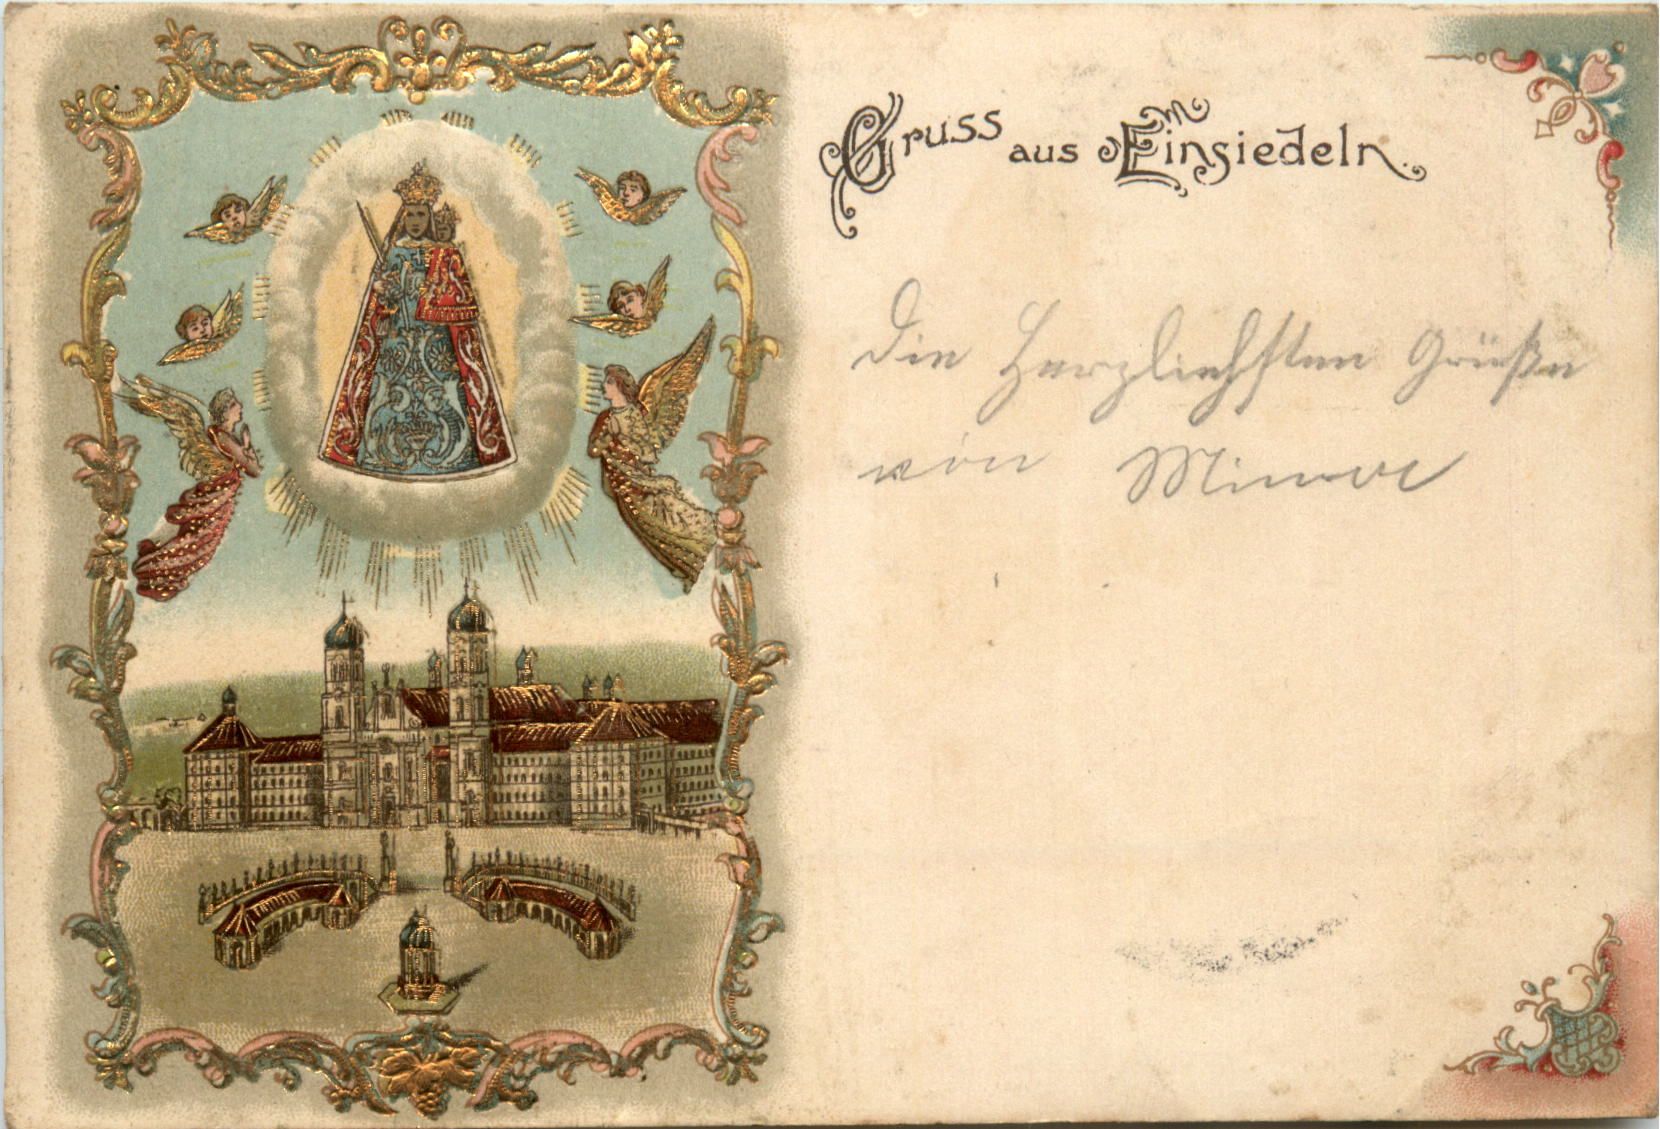 Gruss aus Einsiedeln.
Die herzlichsten Grüße
von